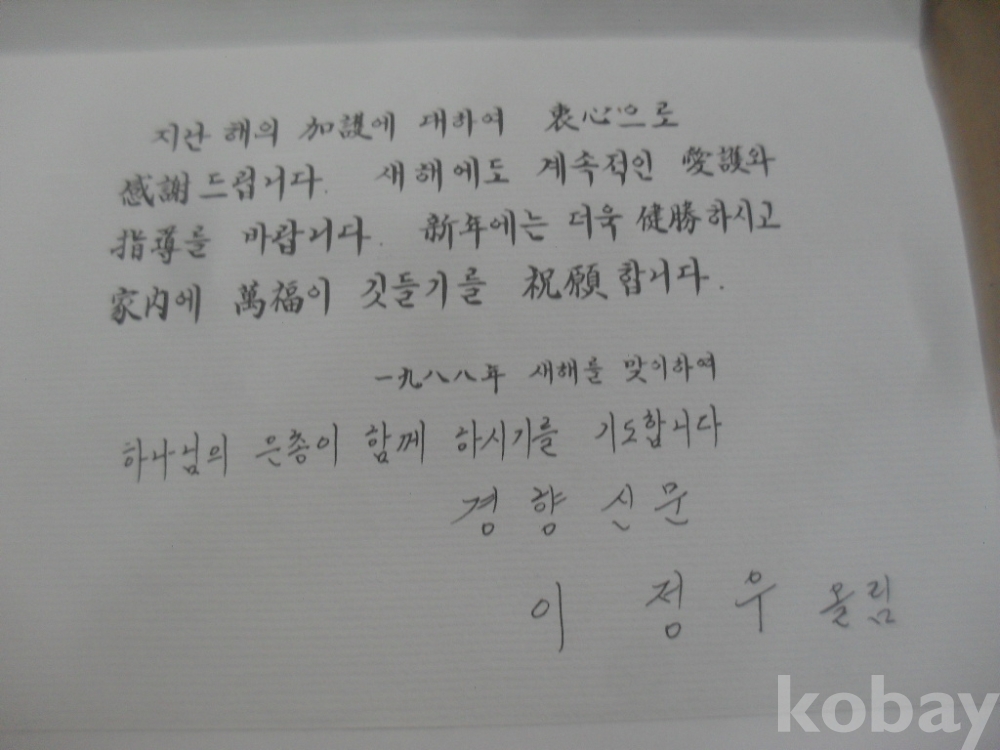 지난 해의 加護에 대하여 衷心으로
感謝드립니다. 새해에도 계속적인 愛護와
指導를 바랍니다. 新年에는 더욱 健勝하시고
家內에 萬福이 깃들기를 祝願합니다.
一九八八年 새해를 맞이하여
하나님의 은총이 함께 하시기를 기도합니다
경향신문
이정우 올림
kobay